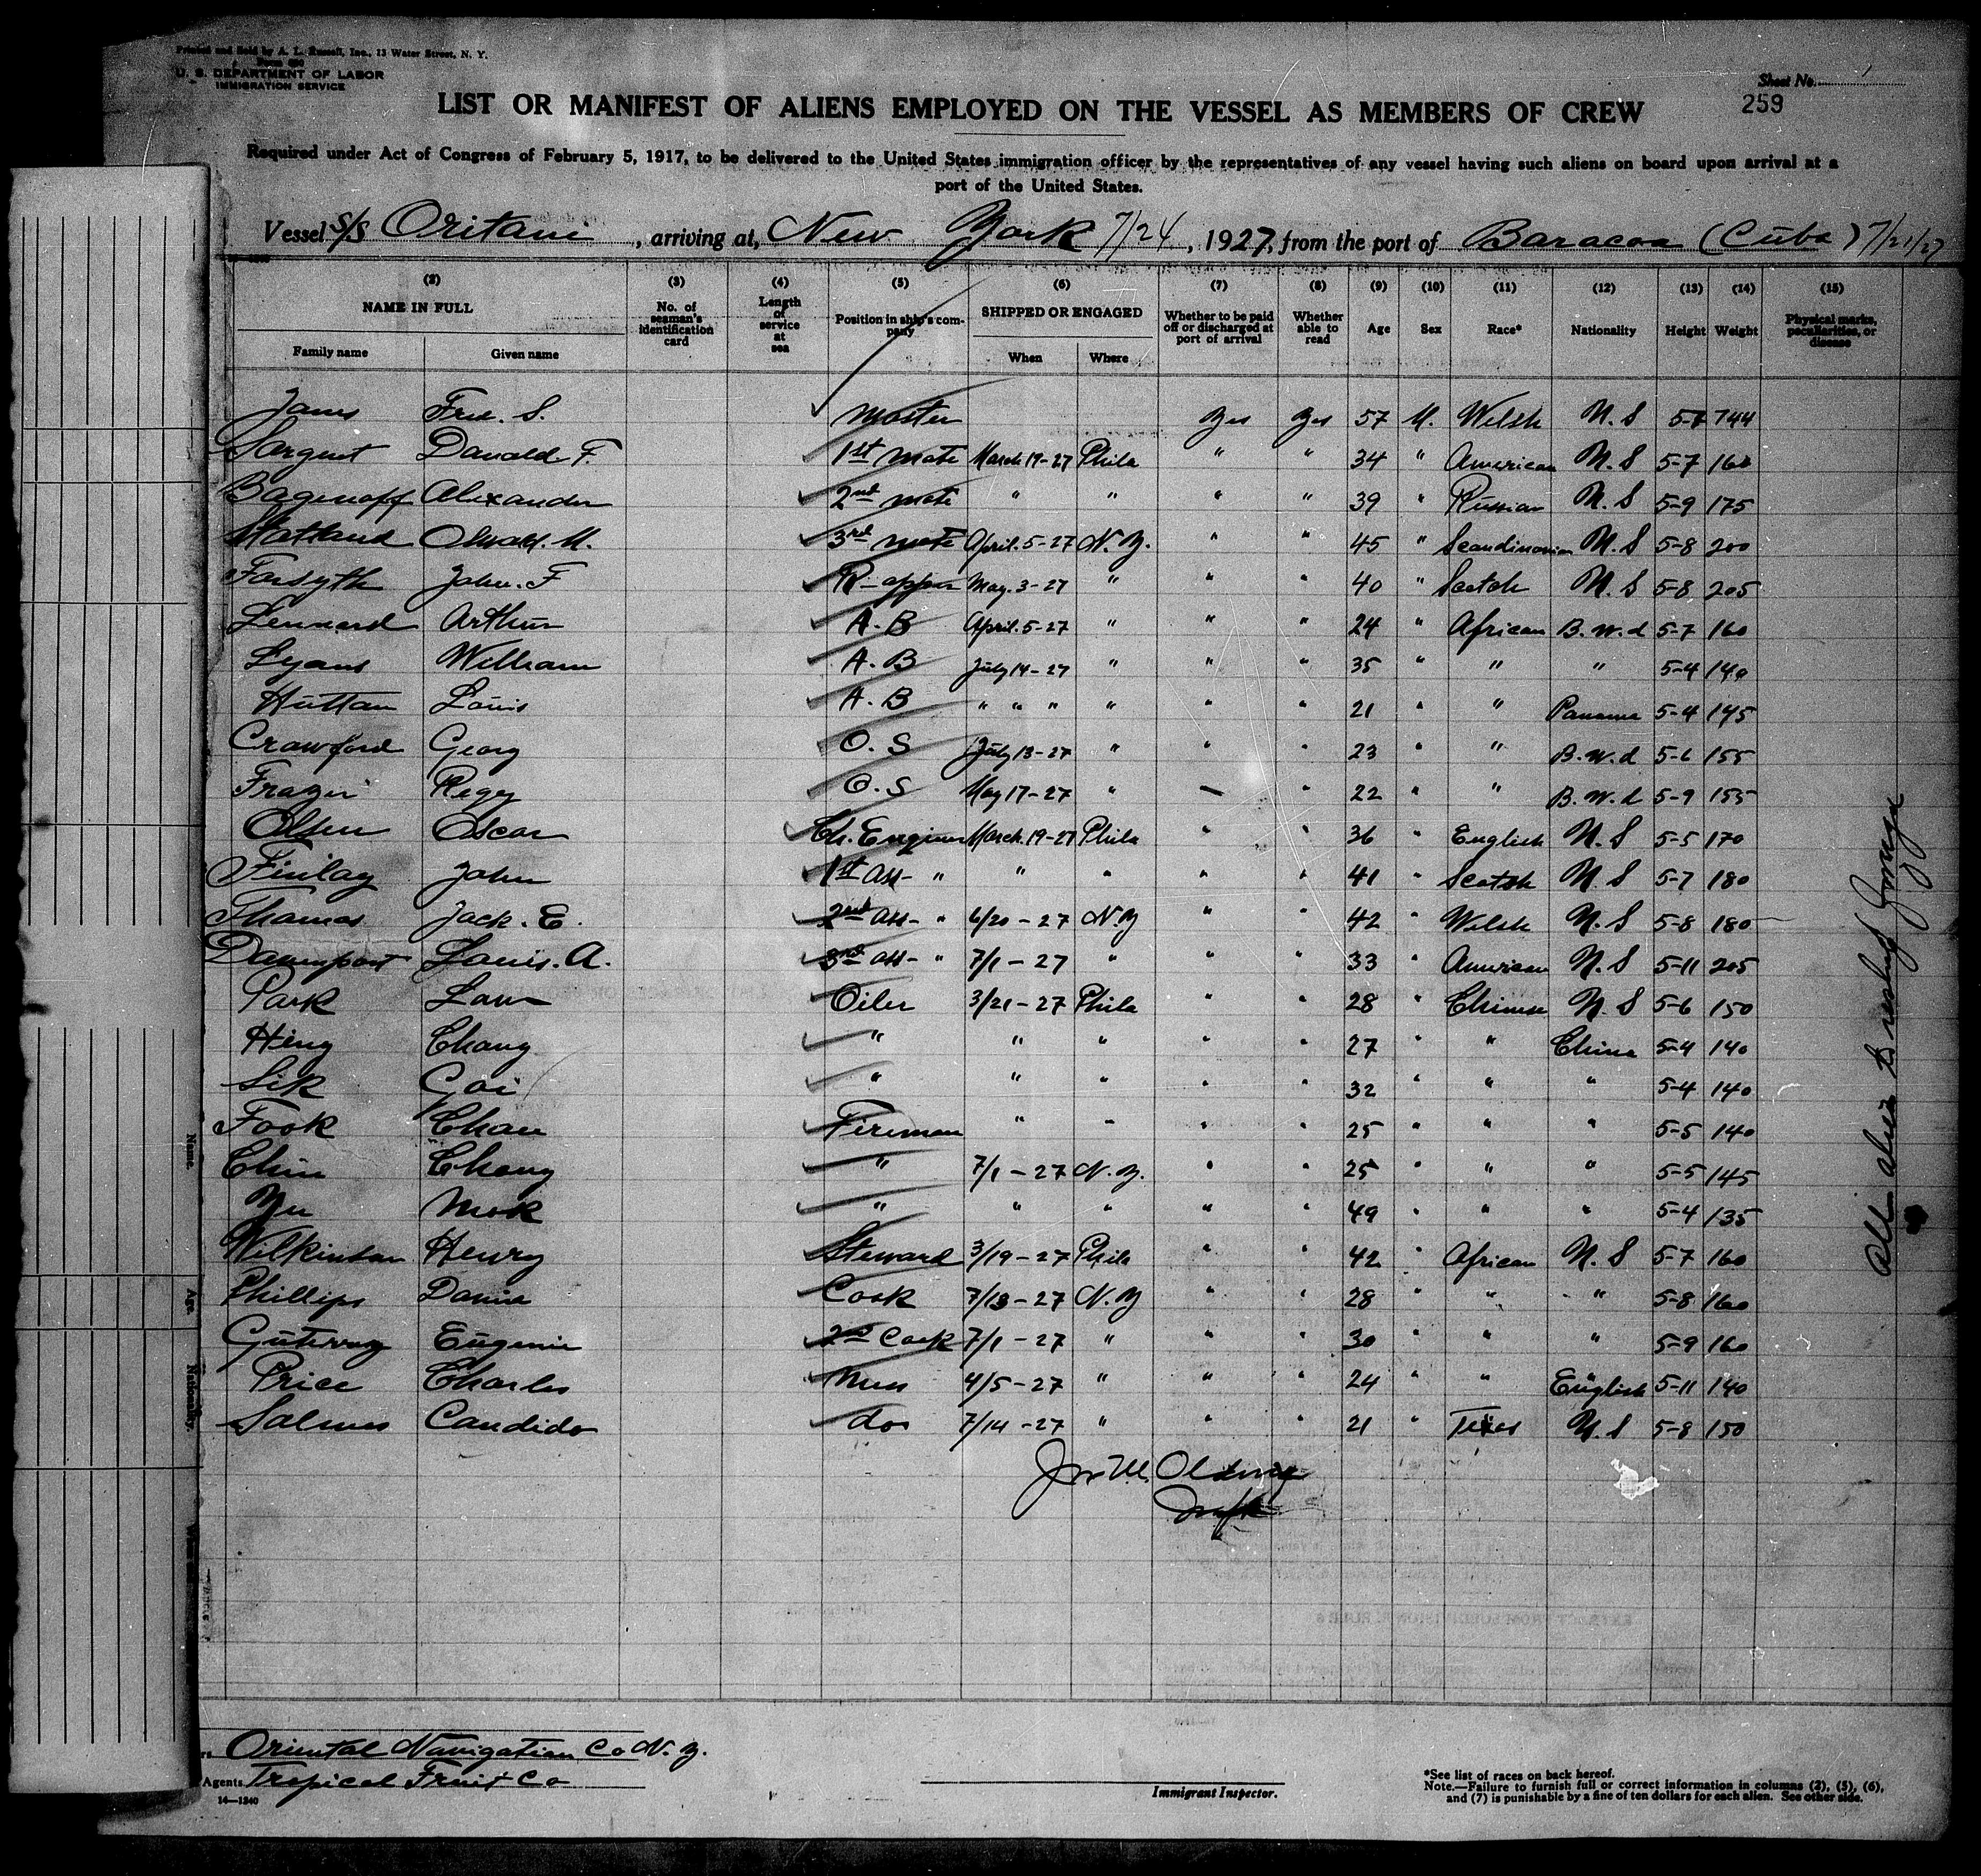 Printed and Sold by A. L. Russell, Inc., 13 Water Street, N. Y.
U. S. DEPARTMENT OF LABOR
IMMIGRATION SERVICE
Sheet No. 1
LIST OR MANIFEST OF ALIENS EMPLOYED ON THE VESSEL AS MEMBERS OF CREW
259
Required under Act of Congress of February 5, 1917, to be delivered to the United States immigration officer by the representatives of any vessel having such aliens on board upon arrival at a
port of the United States.
Vessel S/S Oritani, arriving at, New York 7/24, 1927, from the port of Baracoa (Cuba) 7/21/27
(2) (3) (4) (5) (6) (7) (8) (9) (10) (11) (12) (13) (14) (15)
NAME IN FULL No. of seaman's identification card Length of service at sea Position in ship's company SHIPPED OR ENGAGED Whether to be paid off or discharged at port of arrival Whether able to read Age Sex Race* Nationality Height Weight Physical marks, peculiarities, or disease
Family name Given name When Where
Fred. S. Master Yes Yes 57 M. Welsh U. S 5-7 144
Sargent Donald. F. 1st mate March 19-27 Phila " " 34 " American U. S 5-7 160
Bagenoff Alexander 2nd mate " " " " 39 " Russian U. S 5-9 175
M. 3rd mate April. 5-27 N. Y. " " 45 " Scandinavian U. S 5-8 200
Forsyth John. F May. 3-27 " " " 40 " Scotch U. S 5-8 205
Lennard Arthur A. B April. 5-27 " " " 24 " African B. W. d 5-7 160
Lyons William A. B July 14-27 " " " 35 " " " 5-4 140
Hutton Louis A. B " " " " " " 21 " " Panama 5-4 145
Crawford Georg O. S July 13-27 " " " 23 " " B. W. d 5-6 155
Frazer Regy O. S May 17-27 " " 22 " " B. W. d 5-9 155
Olsen Oscar Ch. Engineer March. 19-27 Phila " " 36 " English U. S 5-5 170
Finlay John 1st Ass- " " " " " 41 " Scotch U. S 5-7 180
Thomas Jack. E. 2nd Ass- " 6/20-27 N. Y " " 42 " Welsh U. S 5-8 180
Davenport Louis. A. 3rd Ass- " 7/1-27 " " " 33 " American U. S 5-11 205
Park Law Oiler 3/21-27 Phila " " 28 " Chinese U. S 5-6 150
Hing Chang " " " " " 27 " " China 5-4 140
Sik Goi " " " " " 32 " " " 5-4 140
Fook Chan Fireman " " " " 25 " " " 5-5 140
Chin Chang " 7/1-27 N. Y. " " 25 " " " 5-5 145
Yu Mok " " " " " 49 " " " 5-4 135
Wilkinson Henry Steward 3/19-27 Phila " " 42 " African U. S 5-7 160
Phillips Cook 7/13-27 N. Y " " 28 " " " 5-8 160
Eugenie 2nd Cook 7/1-27 " " " 30 " " " 5-9 160
Price Charles Mess 4/5-27 " " " 24 " " English 5-11 140
Candido do 7/14-27 " " " 21 " U. S 5-8 150
Oriental Navigation Co N. Y.
Agents Tropical Fruit Co
14—1240
Immigrant Inspector.
*See list of races on back hereof.
Note.—Failure to furnish full or correct information in columns (2), (5), (6),
and (7) is punishable by a fine of ten dollars for each alien. See other side.
Name.
Age.
Nationality.